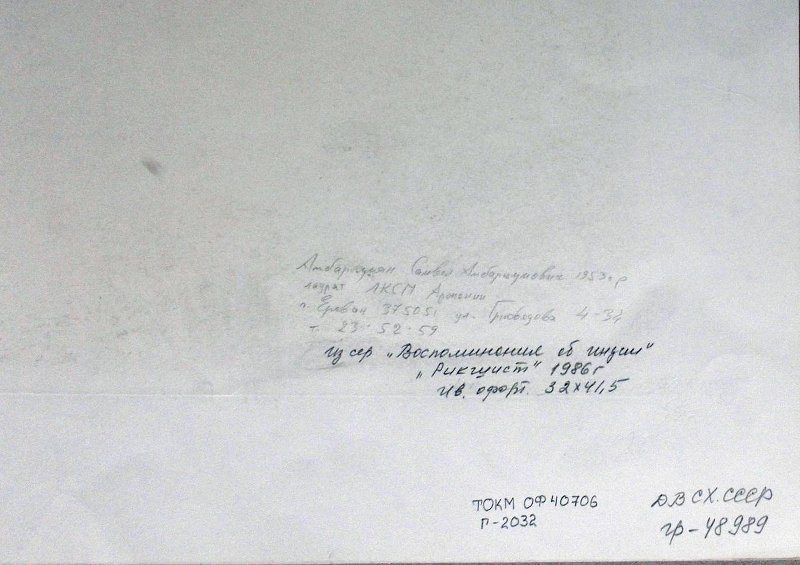 Амбарцумян Самвел Амбарцумович 1953 г р
лауреат ЛКСМ Армении
г. Ереван 375051 ул. Грибоедова 4-34
т. 23-52-59
Из сер „Воспоминания об индии"
„Рикшист" 1986 г
цв. офорт. 32х41,5
ТОКМ ОФ 40706
Г-2032
ДВ СХ. СССР
гр-48989